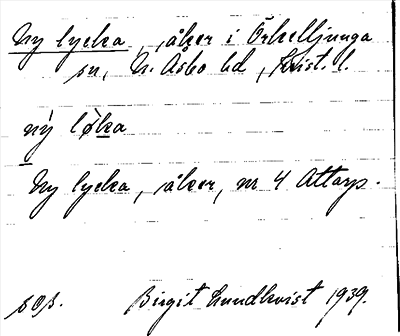 Ny lycka, åker i Örkelljunga
sn, N. Åsbo hd, Krist. l.
ny̌ lø̀ka
Ny lycka, åker, nr 4 Attarp.
søs. Birgit Lundkvist 1939.